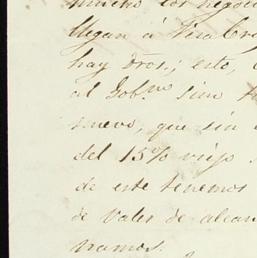 mucho los negoci
llegan á Vera Cru
hay dros.; esto,
al Gob.no sino
nuevo, que sin
del 15% viejo
de este tenemos
de vales de alcan
ramos.